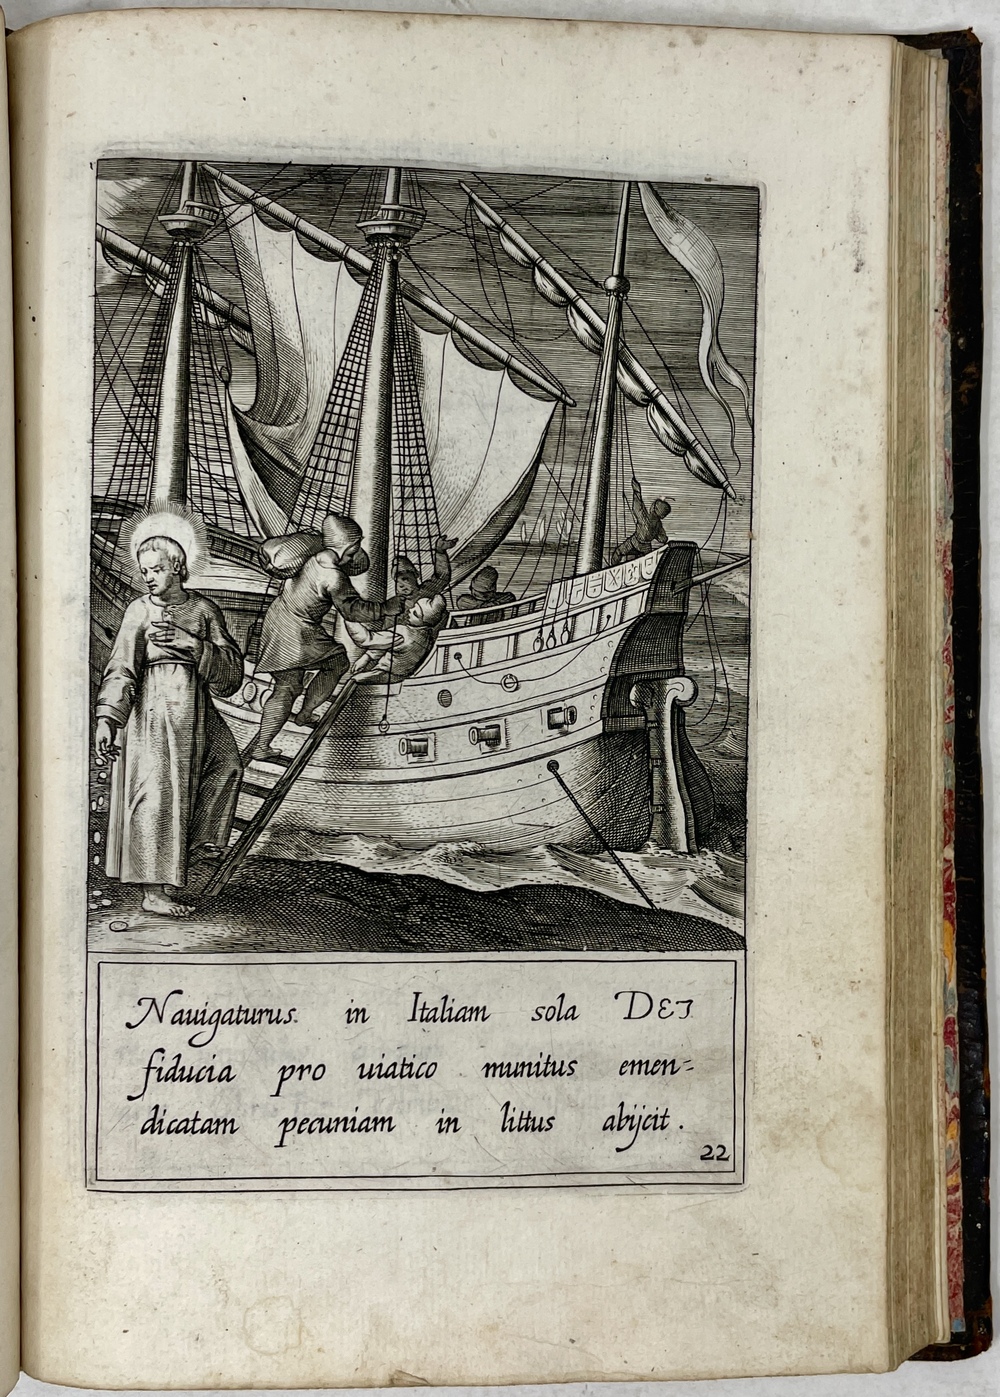 Nauigaturus. in Italiam sola DEI
fiducia pro uiatico munitus emen-
dicatam pecuniam in littus abijcit.
22